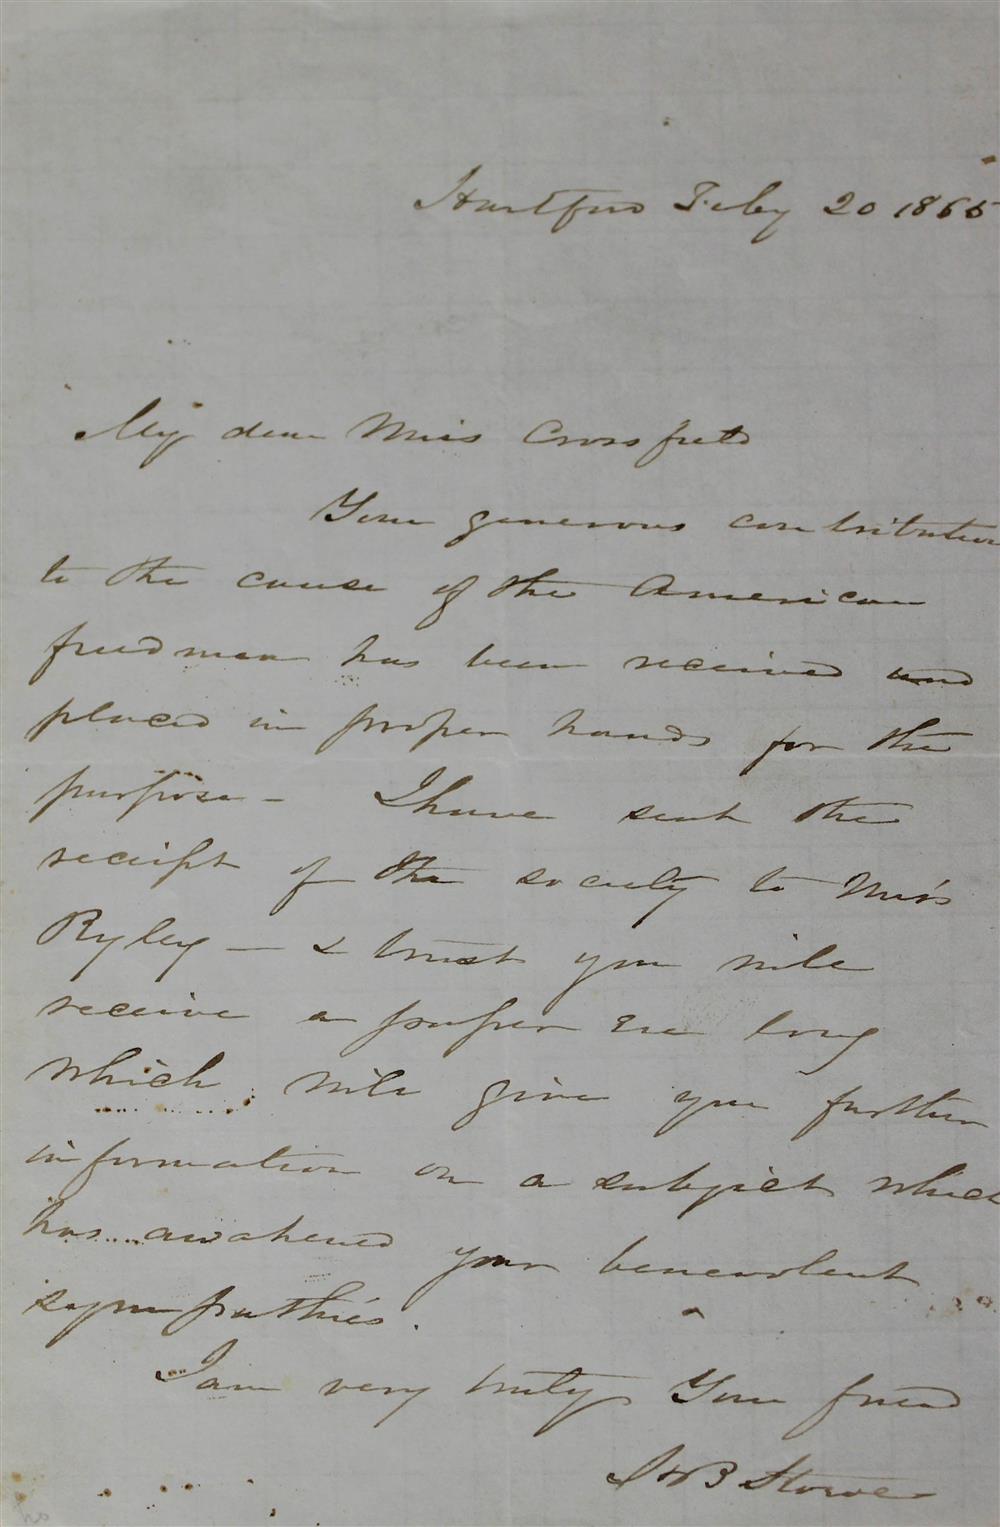 Hartford Feby 20 1865
My dear Miss Crossfield
Your generous contribution
to the cause of the American
freedman has been received and
placed in proper hands for the
purpose - I have sent the
receipt of the society to Miss
Ryley — & trust you will
receive a paper ere long
which will give you further
information on a subject which
has awakened your benevolent
sympathies.
I am very truly Your friend
H B Stowe